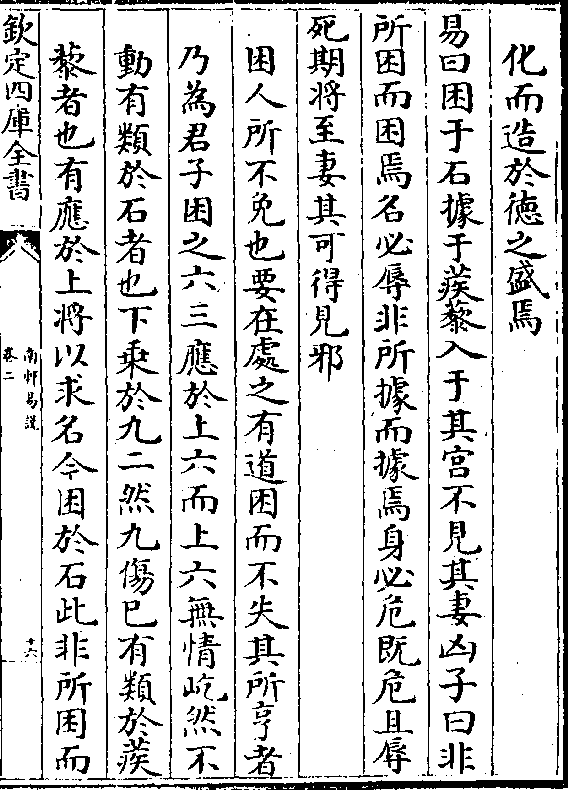 化而造於德之盛焉
易曰困于石據于蒺藜入于其宫不見其妻凶子曰非
所困而困焉名必辱非所據而據焉身必危既危且辱
死期将至妻其可得見邪
困人所不免也要在處之有道困而不失其所亨者
乃為君子困之六三應於上六而上六無情屹然不
動有類於石者也下乗於九二然九傷已有類於蒺
藜者也有應於上将以求名今困於石此非所困而
欽定四庫全書
南軒易說
卷二
十六